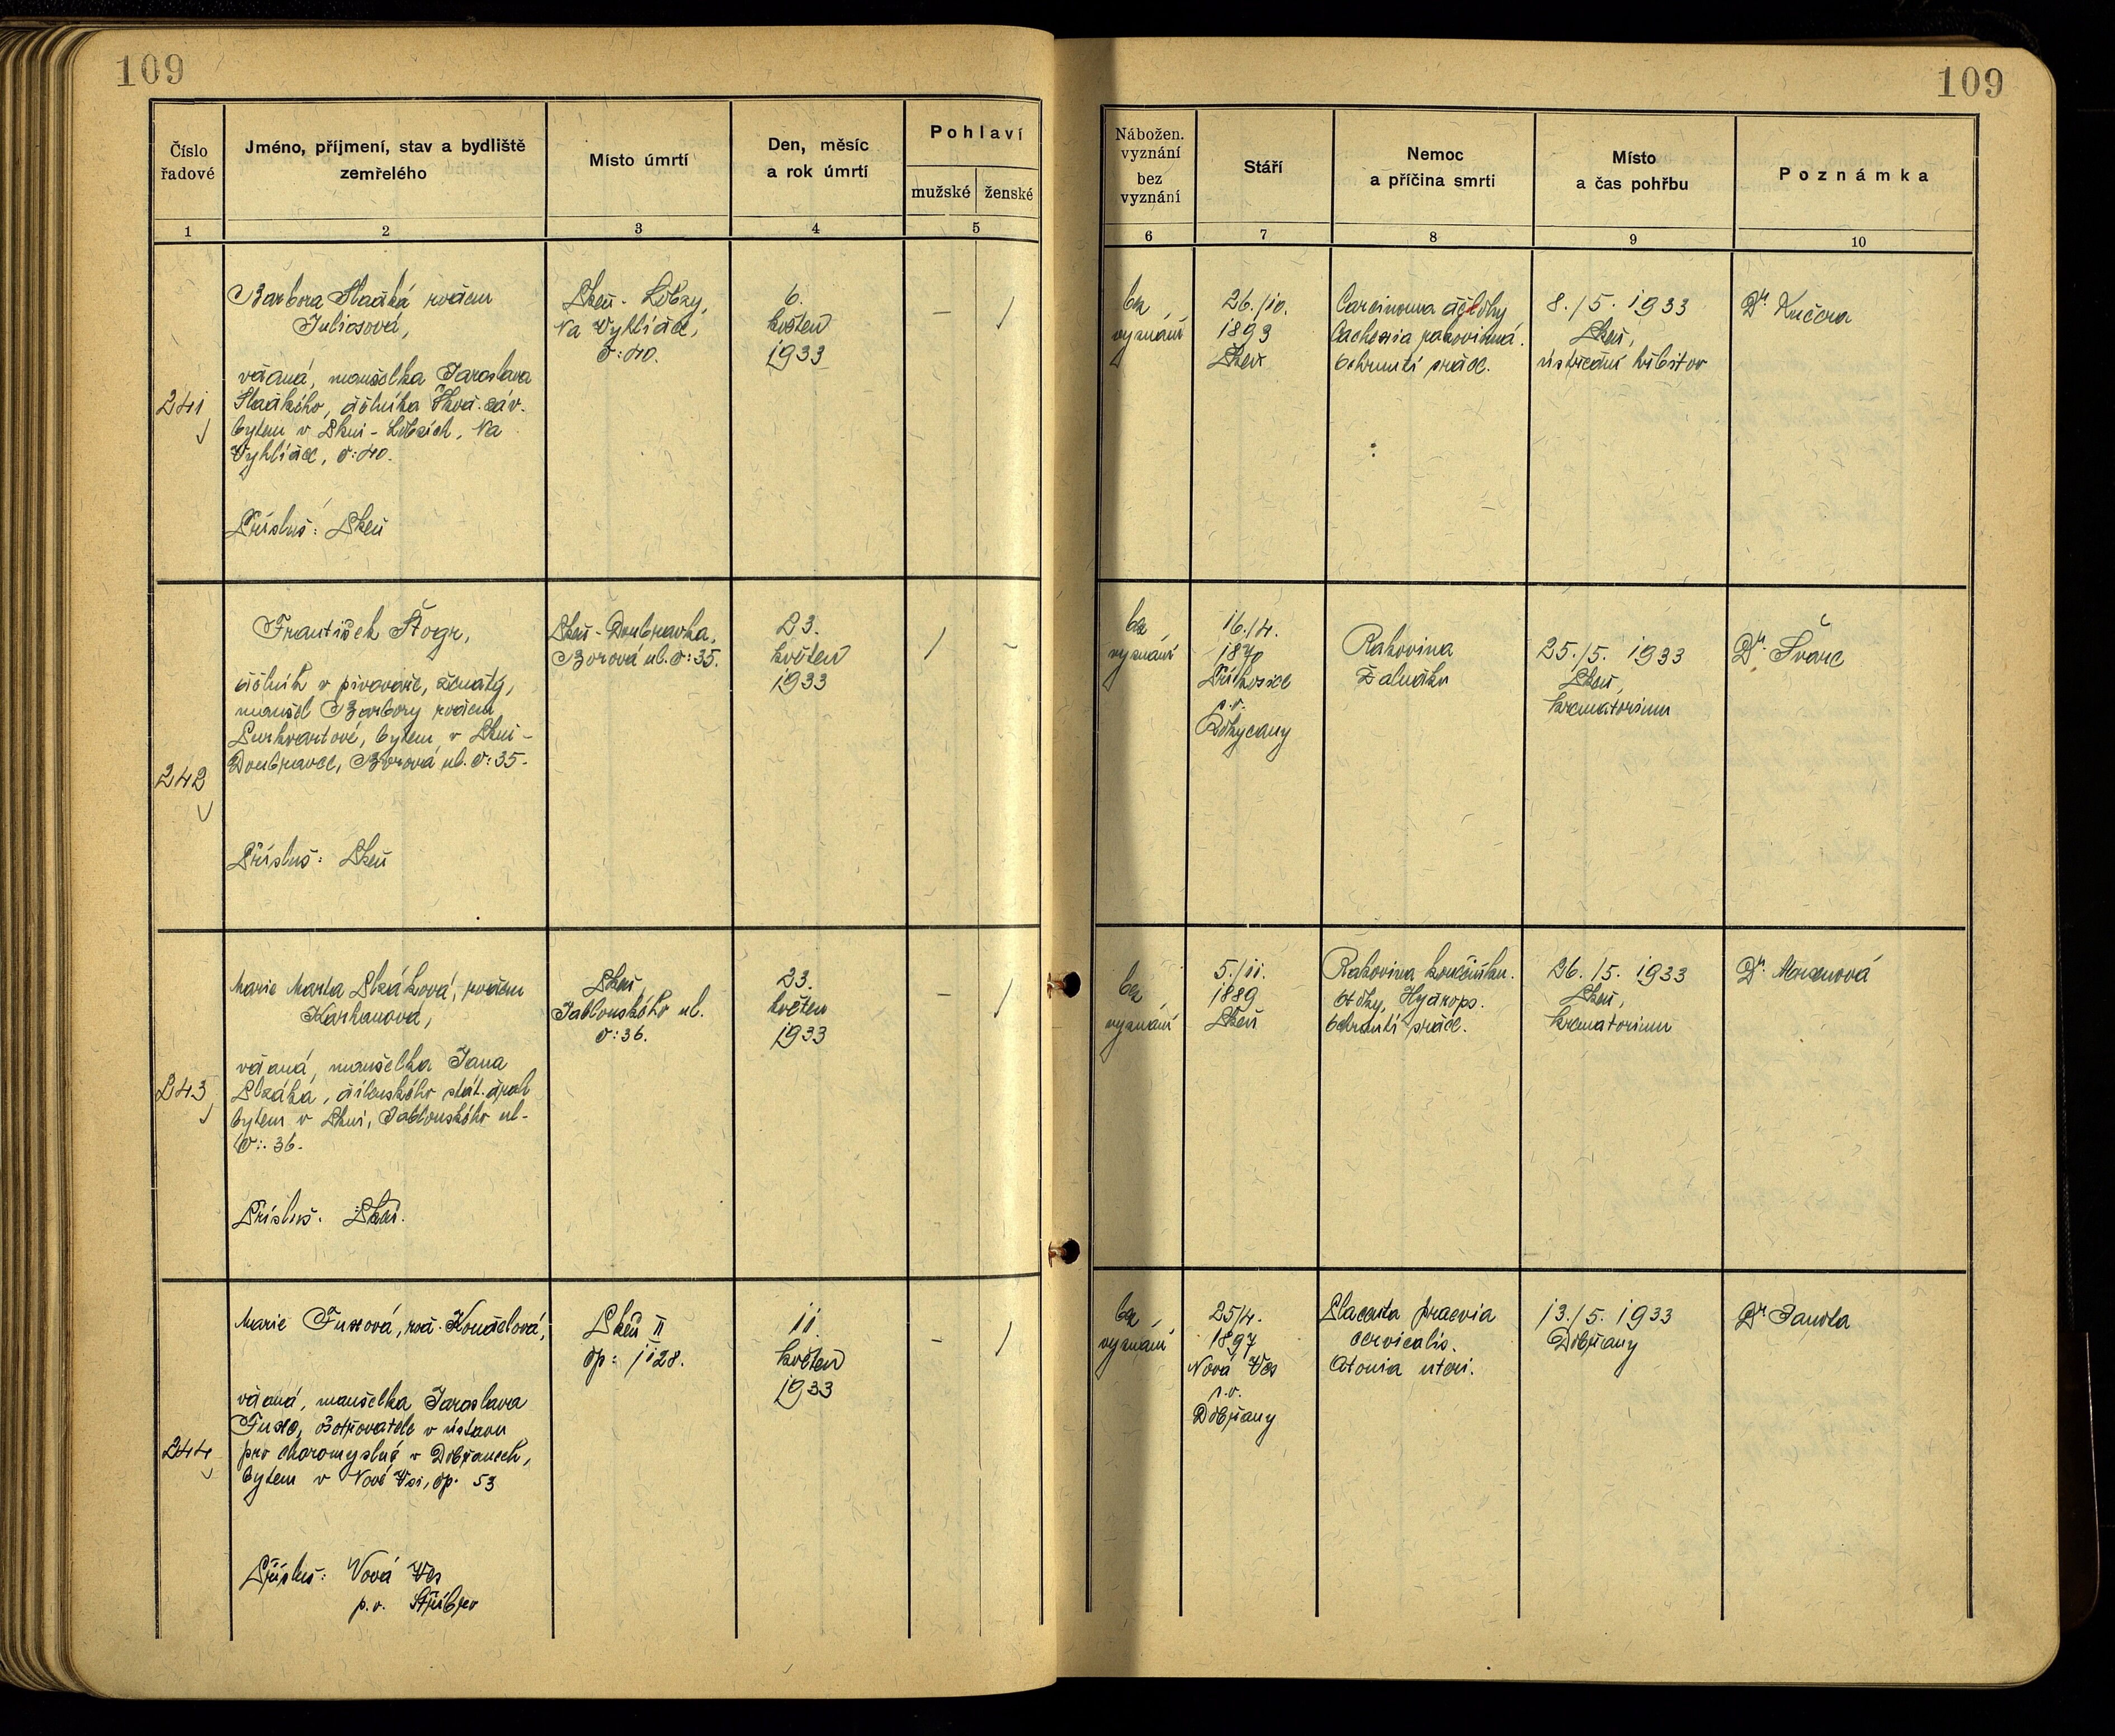 109
109
Číslo
řadové
Jméno, příjmení, stav a bydliště
zemřelého
Místo úmrtí
Den, měsíc
a rok úmrtí
Pohlaví
mužské
ženské
Nábožen.
vyznání
bez
vyznání
Stáří
Nemoc
a příčina smrti
Místo
a čas pohřbu
Poznámka
1
2
3
4
5
6
7
8
9
10
241
Barbora Sladká rozen
Juliosová,
vdaná, manželka Jaroslava
Sladkého, dělníka Škod. záv.
bytem v Plzni - Lobzích, Na
Vyhlídce, č: 40.
Přísluš: Plzeň
Plzeň - Lobzy,
Na Vyhlídce,
č: 40.
6.
květen
1933
–
/
bez
vyznání
26./10.
1893
Plzeň
Carcinoma dělohy
Cachexia rakovinná.
Ochrnutí srdce.
8./5. 1933
Plzeň,
ústřední hřbitov
Dr. Kučera
242
František Štogr,
dělník v pivovaře, ženatý,
manžel Barbory rozen
bytem v Plzni -
Doubravce, Borová ul. č: 35.
Přísluš: Plzeň
Plzeň - Doubravka,
Borová ul. č: 35.
23.
květen
1933
/
–
bez
vyznání
16./4.
1870
Příkosice
p. o.
Rokycany
Rakovina
Žaludku
25./5. 1933
Plzeň,
krematorium
Dr. Švarc
243
Marie Marta Plzáková, rozen
Karhanová,
vdaná, manželka Jana
Plzáka, dílenského stát. drah
bytem v Plzni, Jablonského ul.
č: 36.
Přísluš. Plzeň.
Plzeň
Jablonského ul.
č: 36.
23.
květen
1933
–
/
bez
vyznání
5./11.
1889
Plzeň
Rakovina konečníku.
Hydrops.
Ochrnutí srdce.
26./5. 1933
Plzeň,
krematorium
Dr. Mocenová
244
Marie Fuxová, roz. Koudelová,
vdaná, manželka Jaroslava
Fuxe, ošetřovatele v ústavu
pro choromyslné v Dobřanech,
bytem v Nové Vsi, čp. 53
Přísluš: Nová Ves
p. o. Stříbro
Plzeň II
čp: 1128.
11.
květen
1933
–
/
bez
vyznání
25/4.
1897
Nová Ves
p. o.
Dobřany
Placenta praevia
cervicalis.
Atonia uteri.
13./5. 1933
Dobřany
Dr Janota